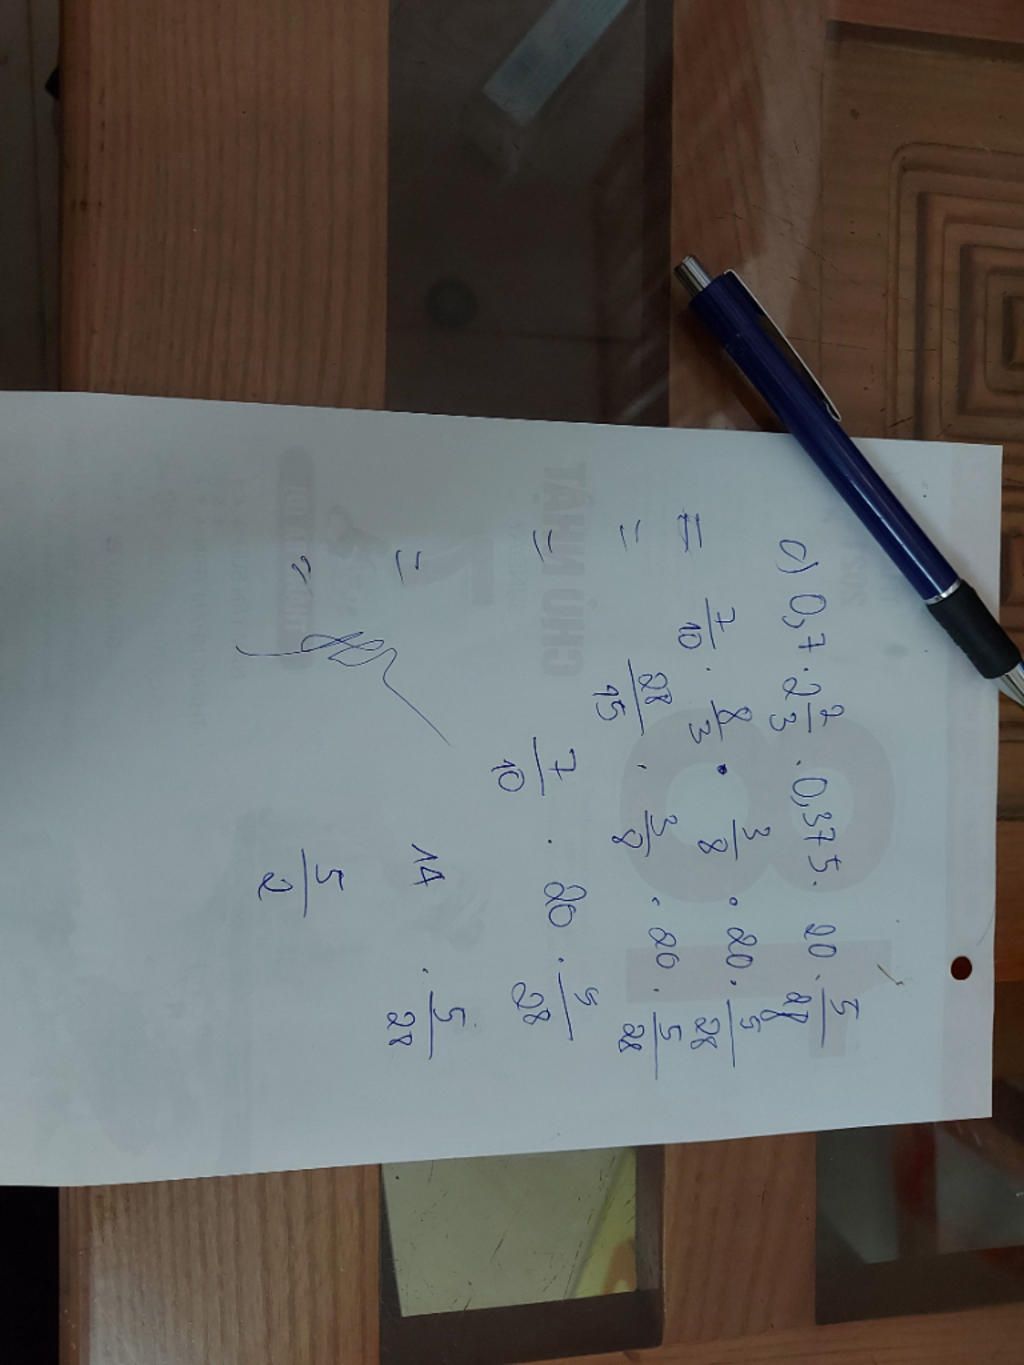 c) 0,7 . 2 2/3 . 0,375 . 20 . 5/28
= 7/10 . 8/3 . 3/8 . 20 . 5/28
= 28/15 . 3/8 . 20 . 5/28
= 7/10 . 20 . 5/28
= 14 . 5/28
= 5/2
18
CHỦ NHẬT
7